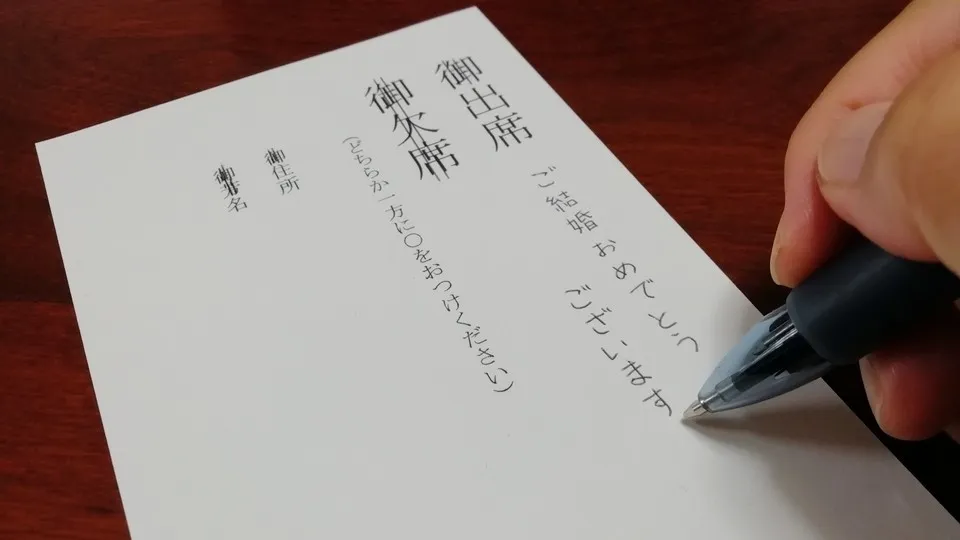 御出席
ご結婚おめでとう
ございます
御欠席
(どちらか一方に〇をおつけください)
御住所
御芳名